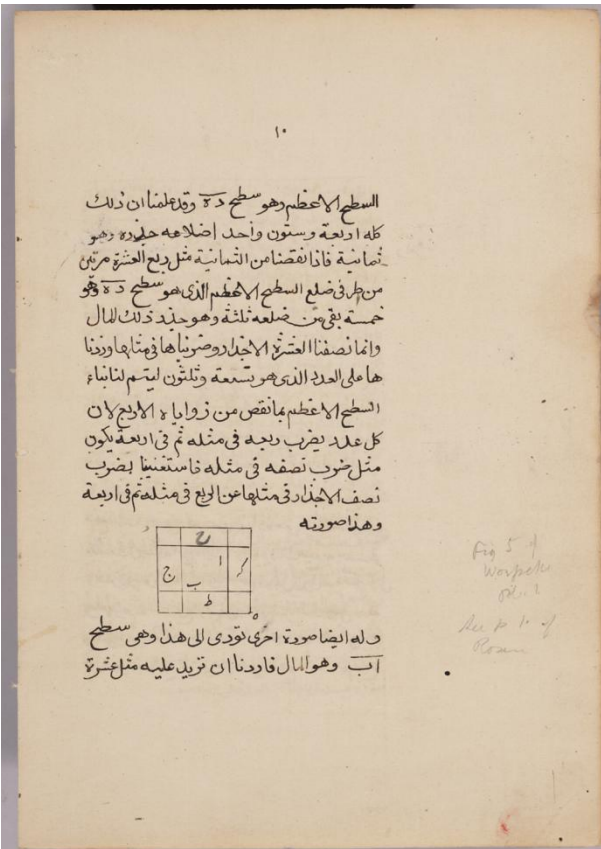 ١٠
السطح الاعظم وهو سطح ده وقد علمنا ان ذلك
كله اربعة وستون واحد اضلاعه جذره وهو
ثمانية فاذا نقصنا من الثمانية مثل ربع العشرة مرتين
من طرفى ضلع السطح الاعظم الذى هو سطح ده وهو
خمسة بقى من ضلعه ثلثة وهو جذر ذلك المال
وانما نصفنا العشرة الاجذار وضربناها فى مثلها وزدنا
ها على العدد الذى هو تسعة وثلثون ليتم لنا بناء
السطح الاعظم بما نقص من زواياه الاربع لان
كل عدد يضرب ربعه فى مثله ثم فى اربعة يكون
مثل ضرب نصفه فى مثله فاستغنينا بضرب
نصف الاجذار فى مثلها عن الربع فى مثله ثم فى اربعة
وهذا صورته
د
ح
ا
ج
ب
ك
ط
ه
Fig 5 of
Woepcke
See p 10 of
Rosen
وله ايضا صورة اخرى تودى الى هذا وهى سطح
اب وهو المال فاردنا ان نزيد عليه مثل عشرة